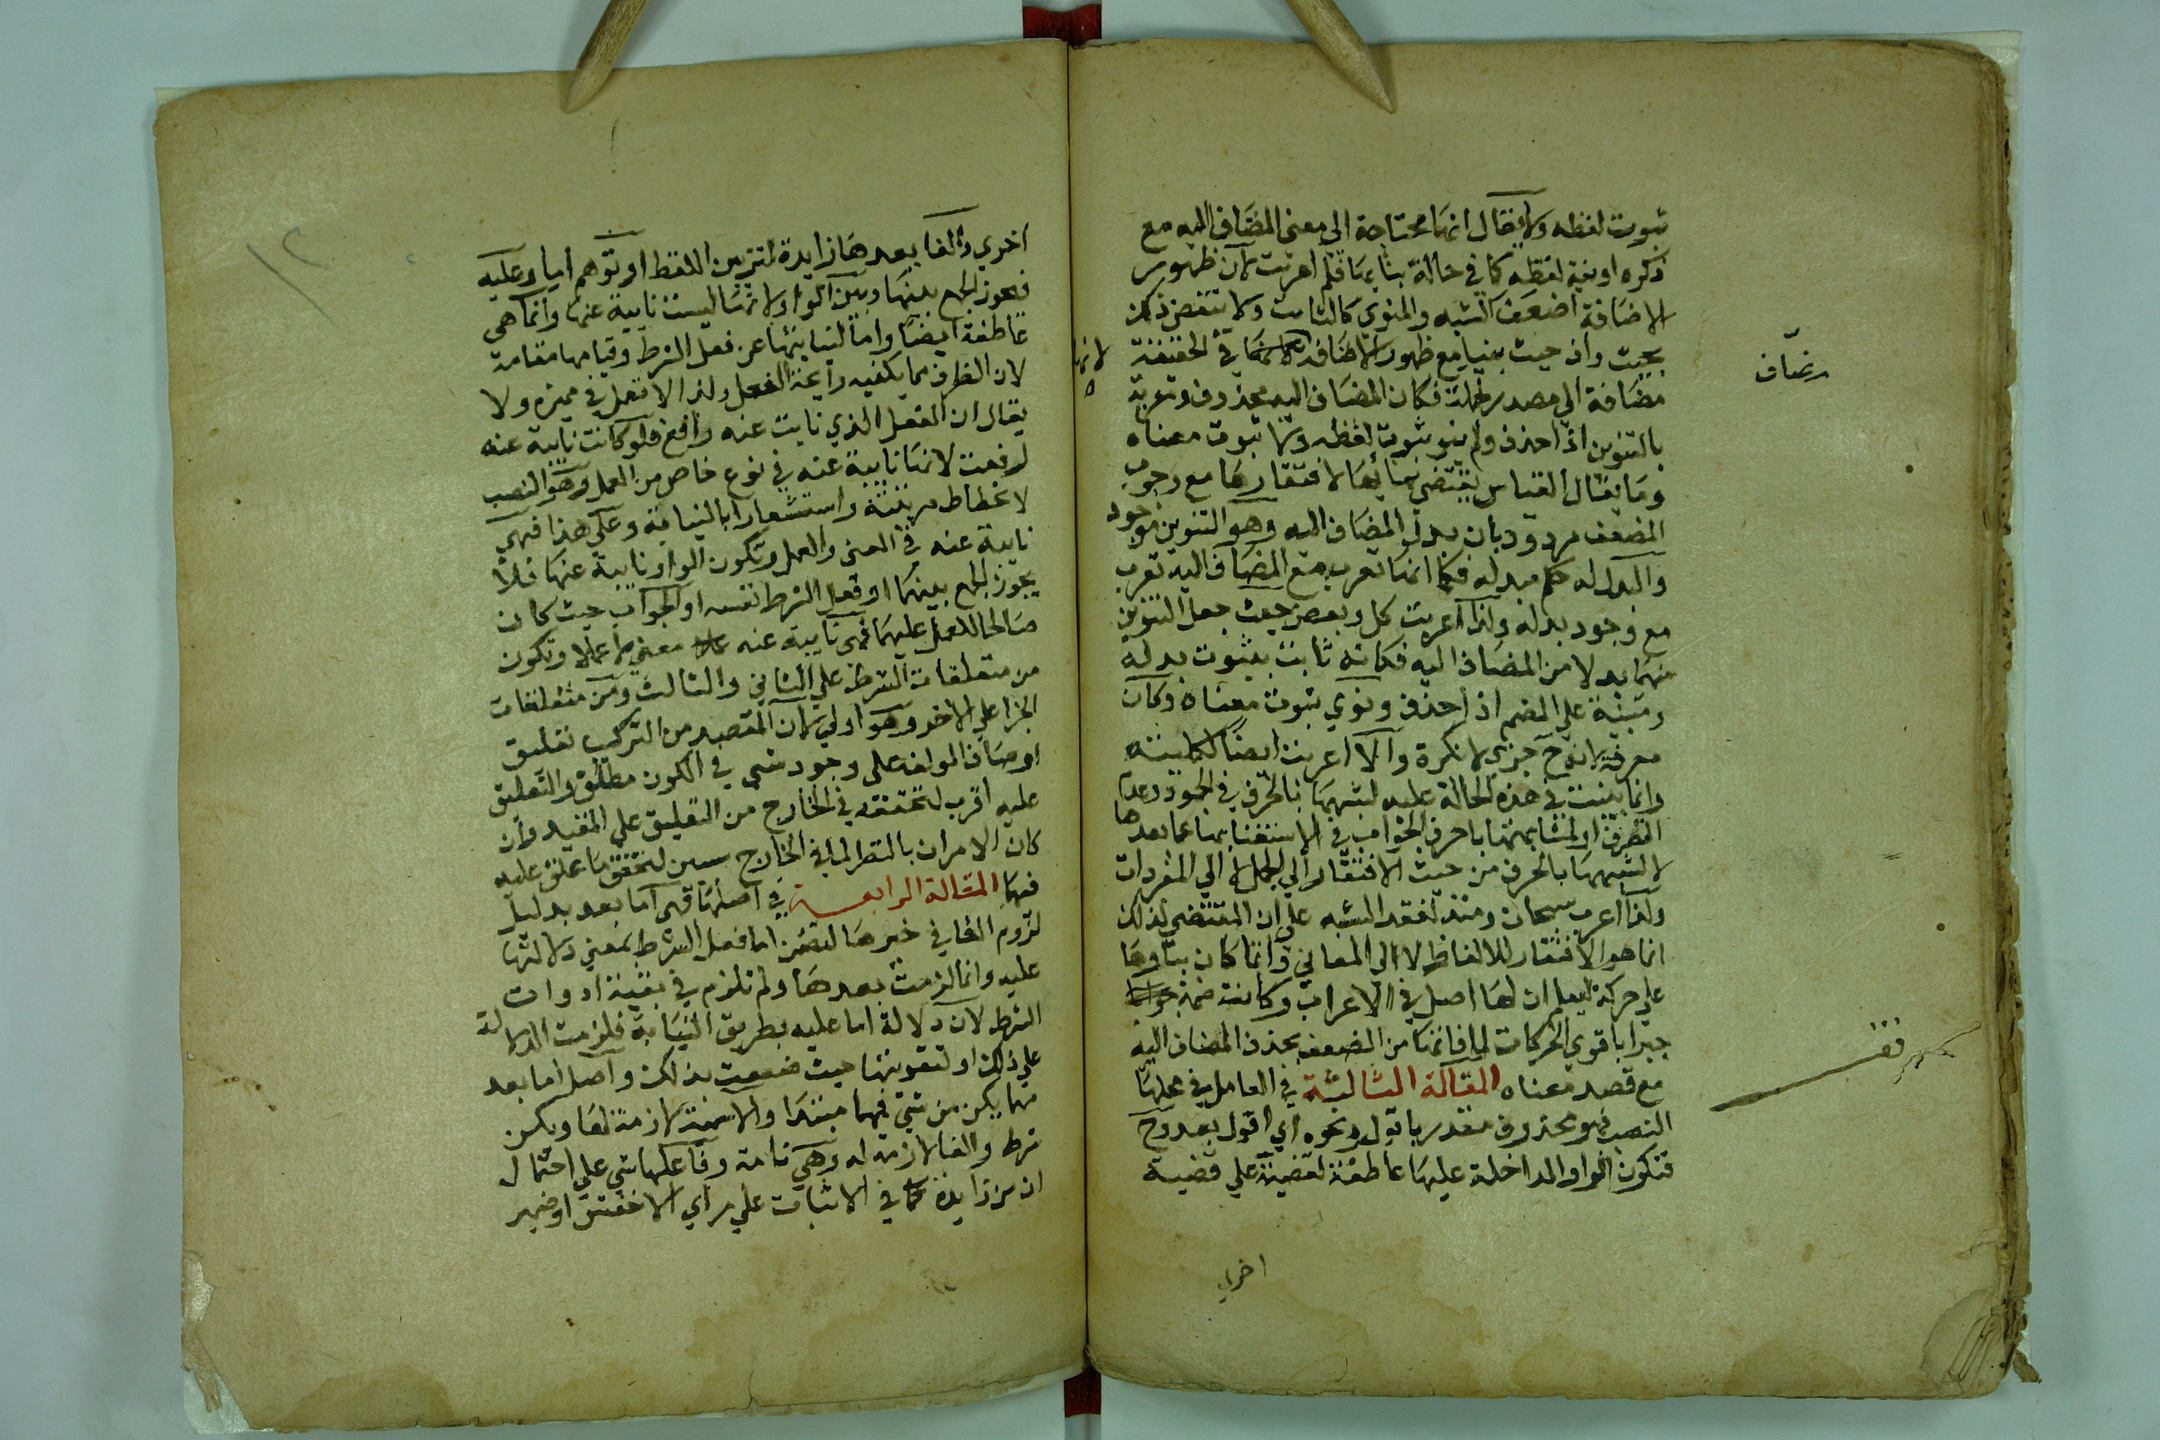 ثبوت لفظه ولا يقال انها محتاجة الى معنى المضاف اليه مع
ذكره او نية لفظه كما في حالة بنائها فلم اعربت لان ظهور
الاضافة اضعف الشبه والمنوي كالثابت ولا ينتقض ذلك
بحيث واذ حيث بنيا مع ظهور الاضافة لانها في الحقيقة
مضافة الي مصدر الجملة فكان المضاف اليه محذوف ومعربة
بالتنوين اذا حذف ولم ينو ثبوت لفظه ولا ثبوت معناه
وما يقال القياس يقتضي بنائها لافتقارها مع وجوب
المضعف مردود بان بدل المضاف اليه وهو التنوين موجود
والبدل له حكم مبدله فكما انها تعرب مع المضاف اليه تعرب
مع وجود بدله ولذا اعربت كل وبعض حيث جعل التنوين
منهما بدلا من المضاف اليه فكانه ثابت بثبوت بدله
ومبنية علي الضم اذا حذف ونوي ثبوت معناه وكان
معرفة لانه ح جزي لا نكرة والا اعربت ايضا
وانما بنيت في هذه الحالة عليه لشبهها بالحرف في الجمود
او لمشابهتها باحرف الجواب في الاستغنا بها عما بعدها
لا لشبهها بالحرف من حيث الافتقار الي الجمل لا الي المفردات
ولذا اعرب سبحان ومنذ لفقد الشبه علي ان المقتضي لذلك
انما هو الافتقار للالفاظ لا الى المعاني وانما كان بناوها
علي حركة ليعلم ان لها اصل في الاعراب وكانت ضمة
جبرا باقوي الحركات لما فاتها من الضعف بحذف المضاف اليه
مع قصد معناه المقالة الثالثة في العامل في محلها
النصب فهو محذوف مقدر باقول ونحوه اي اقول بعد وح
فتكون الواو الداخلة عليها عاطفة لقضية علي قضية
اخري
لانها
اخري والفا بعدها زايدة لتزيين اللفظ او توهم اما وعليه
فيجوز الجمع بينها وبين الواو لانها ليست نايبة عنها وانما هي
عاطفة ايضا واما لنيابتها عن فعل الشرط وقيامها مقامه
لان الظرف مما يكفيه رايحة الفعل ولذا لا تعمل في مميزه ولا
يقال ان الفعل الذي نابت عنه رافع فلو كانت نايبة عنه
لرفعت لانها نايبة عنه في نوع خاص من العمل وهو النصب
لانحطاط مرتبته واستشعارا بالنيابة وعلى هذا فهي
نايبة عنه في المعنى والعمل وتكون الواو نايبة عنها فلا
يجوز الجمع بينهما او فعل الشرط نفسه او الجواب حيث كان
صالحا للعمل عليهما فهي نايبة عنه معني لا عملا وتكون
من متعلقات الشرط علي الثاني والثالث ومن متعلقات
الجزا علي الاخر وهو اولي لان المقصد من التركيب تعليق
اوصاف المولف على وجود شي في الكون مطلق والتعليق
عليه اقرب لتحققه في الخارج من التعليق علي المقيد وان
كان الامران بالنظر لما في الخارج سيين لتحقق ما علق عليه
فيها المقالة الرابعة في اصلها فهي اما بعد بدليل
لزوم الفا في خبرها لتضمن اما فعل الشرط بمعني دلالتها
عليه وانما لزمت بعدها ولم تلزم في بقية ادوات
الشرط لان دلالة اما عليه بطريق النيابة فلزمت الدلالة
علي ذلك او لتقويتها حيث ضعفت بذلك واصل اما بعد
مهما يكن من شي فمهما مبتدا والاسمية لازمة لها ويكن
شرط والفا لازمة له وهي تامة وفاعلها شي علي احتمال
ان من زايدة كما في الاثبات علي راي الاخفش او ضمير